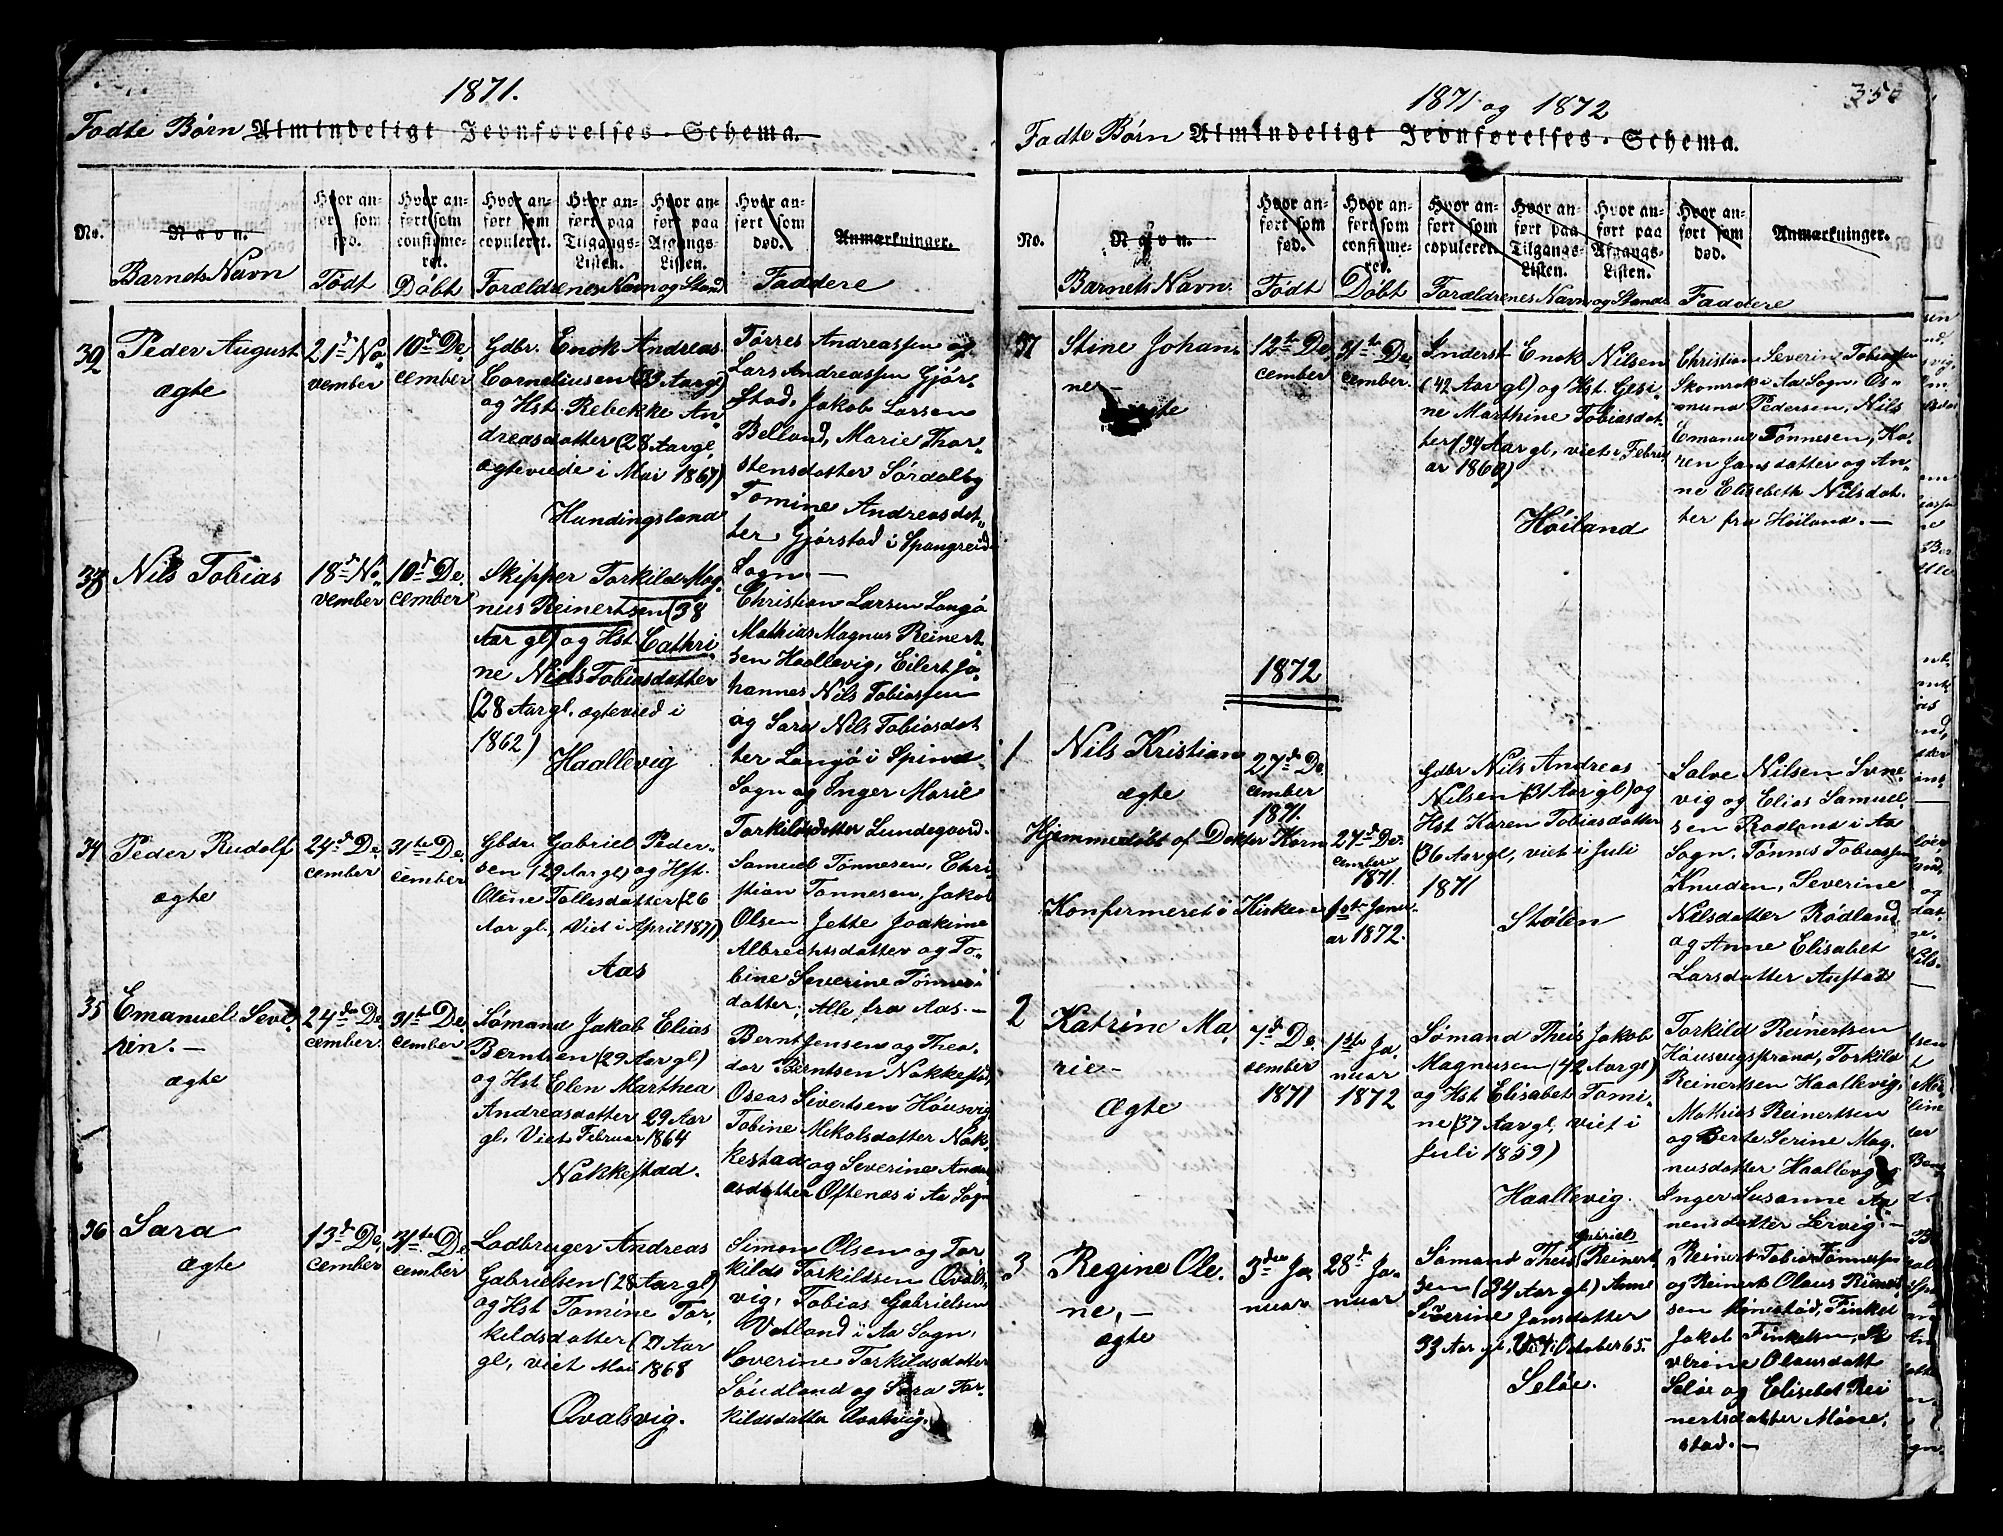 1871.
Fødte Børn Almindeligt Jevnførelses-Schema.
No.
Navn.
Barnets Navn
Hvor anført som fød.
Født
Hvor anført som confirmeret.
Døbt
Hvor anført som copuleret.
Hvor anført paa Tilgangs-Listen.
Hvor anført paa Afgangs-Listen.
Forældrenes Navn og Stand
Hvor anført som død.
Anmærkninger.
Faddere
32
Peder August
ægte
21de No-
vember
10de De-
cember
Gdbr. Enok Andreas
Corneliusen (33 Aar gl)
og Hst. Rebekke An-
dreasdatter (28 Aar gl,
ægteviede i Mai 1867)
Hundingsland
Tørres Andreassen og
Lars Andreassen Gjør-
stad, Jakob Larsen
Belland, Marie Thor-
stensdatter Sørdalby
Tomine Andreasdat-
ter Gjørstad i Spangreid
Sogn. —
33
Nils Tobias
18de No-
vember
10de De-
cember
Skipper Torkild Mag-
nus Reinertsen (38
Aar gl) og Hst Cathri-
ne Niels Tobiasdatter
(28 Aar gl. ægtevied i
1862)
Haallevig
Christian Larsen Langø
Mathias Magnus Reinert-
sen Haallevig, Eilert Jo-
hannes Nils Tobiassen
og Sara Nils Tobiasdat
ter Langø i Spinds
Sogn og Inger Marie
Torkildsdatter Lundegaard.
34
Peder Rudolf
ægte
24de De-
cember
31te De-
cember
Gbdr Gabriel Peder-
sen (29 Aar gl) og Hst.
Oline Tollisdatter (26
Aar gl., Viet i April 1871)
Aas
Samuel Tønnesen, Chri-
stian Tønnesen, Jakob
Olsen Jette Joakime
Albrechtsdatter og To-
bine Severine Tønnes
datter, Alle fra Aas. —
35
Emanuel Seve-
rin. —
ægte
24de De-
cember.
31te De-
cember
Sømand Jakob Elias
Berntsen (29 Aar gl)
og Hst Elen Marthea
Andreasdatter 29 Aar
gl, Viet Februar 1864
Nakkestad.
Bernt Jensen og Theo-
dor Berntsen Nakkestad,
Oseas Sivertsen Høusvig
Tobine Mikalsdatter Nak-
kestad og Severine Andre-
asdatter Oftenæs i Aa Sogn
36
Sara
ægte
13de De-
cember
31te De-
cember
Ladbruger Andreas
Gabrielsen (28 Aar gl)
og Hst Tomine Tor-
kildsdatter (21 Aar
gl, viet Mai 1868
Qvalsvig.
Simon Olsen og Tor-
kilds Torkildsen Qvals-
vig, Tobias Gabrielsen
Vatland i Aa Sogn,
Severine Torkildsdatter
Sandland og Sara Tor-
kildsdatter Qvalsvig.
1871 og 1872
350
Fødte Børn Almindeligt Jevnførelses-Schema.
No.
Navn.
Barnets Navn.
Hvor anført som fød.
Født
Hvor anført som confirmeret.
Døbt
Hvor anført som copuleret.
Hvor anført paa Tilgangs-Listen.
Hvor anført paa Afgangs-Listen.
Forældrenes Navn og Stand
Hvor anført som død.
Anmærkninger.
Faddere
37
Stine Johan-
ne —
ægte
12te De-
cember
31te De-
cember.
Inderst Enok Nilsen
(42 Aar gl) og Hst. Gesi-
ne Marthine Tobiasdat-
ter (34 Aar gl, viet i Febru
ar 1860)
Høiland
Christian Severin Tobiassen
Skomrak i Aa Sogn, Os-
mund Pedersen, Nils
Emanuel Tønnesen, Ka-
ren Jansdatter og An-
ne Elisebeth Nilsdat-
ter fra Høiland. —
1872
1
Nils Kristian
ægte
27de De-
cember
1871.
Hjemmedøbt af Dokter Korn
27de De-
cember
1871.
Konfirmeret i Kirken
1ste Janu-
ar 1872.
Gdbr Nils Andreas
Nilsen (31 Aar gl) og
Hst Karen Tobiasdatter
(36 Aar gl, viet i Juli
1871
Stølen
Salve Nilsen Svne-
vig og Elias Samuel-
sen Rødland i Aa
Sogn. Tønnes Tobiassen
Knuden, Severine
Nilsdatter Rødland
og Anne Elisabet
Larsdatter Austad
2
Katrine Ma-
rie —
Ægte
7de De-
cember
1871
1ste Ja-
nuar
1872
Sømand Theis Jakob
Magnusen (42 Aar gl)
og Hst Elisabet Tomi-
ne (37 Aar gl, viet i
Juli 1859)
Haallevig.
Torkild Reinertsen
Høusvigstrand, Torkild
Reinertsen Haallevig,
Mathias Reinertsen
og Berte Serine Mag-
nusdatter Haallevig og
Inger Susanne Aa-
nensdatter Lervig. —
3
Regine Ole-
ne, —
ægte
3die Ja-
nuar
28de Ja-
nuar
Gabriels
Sømand Theis Reinert
sen (34 Aar gl) Anne
Severine Jansdatter
33 Aar gl, Viet October 65.
Seløe.
Reinert Tobias Tønnessen
og Reinert Olaus Reinert-
sen Mønestad, Finkel
Jakob Finkelsen, Se
verine Olausdatt
Seløe og Elisabet Rei
nertsdatter Møne-
stad. —